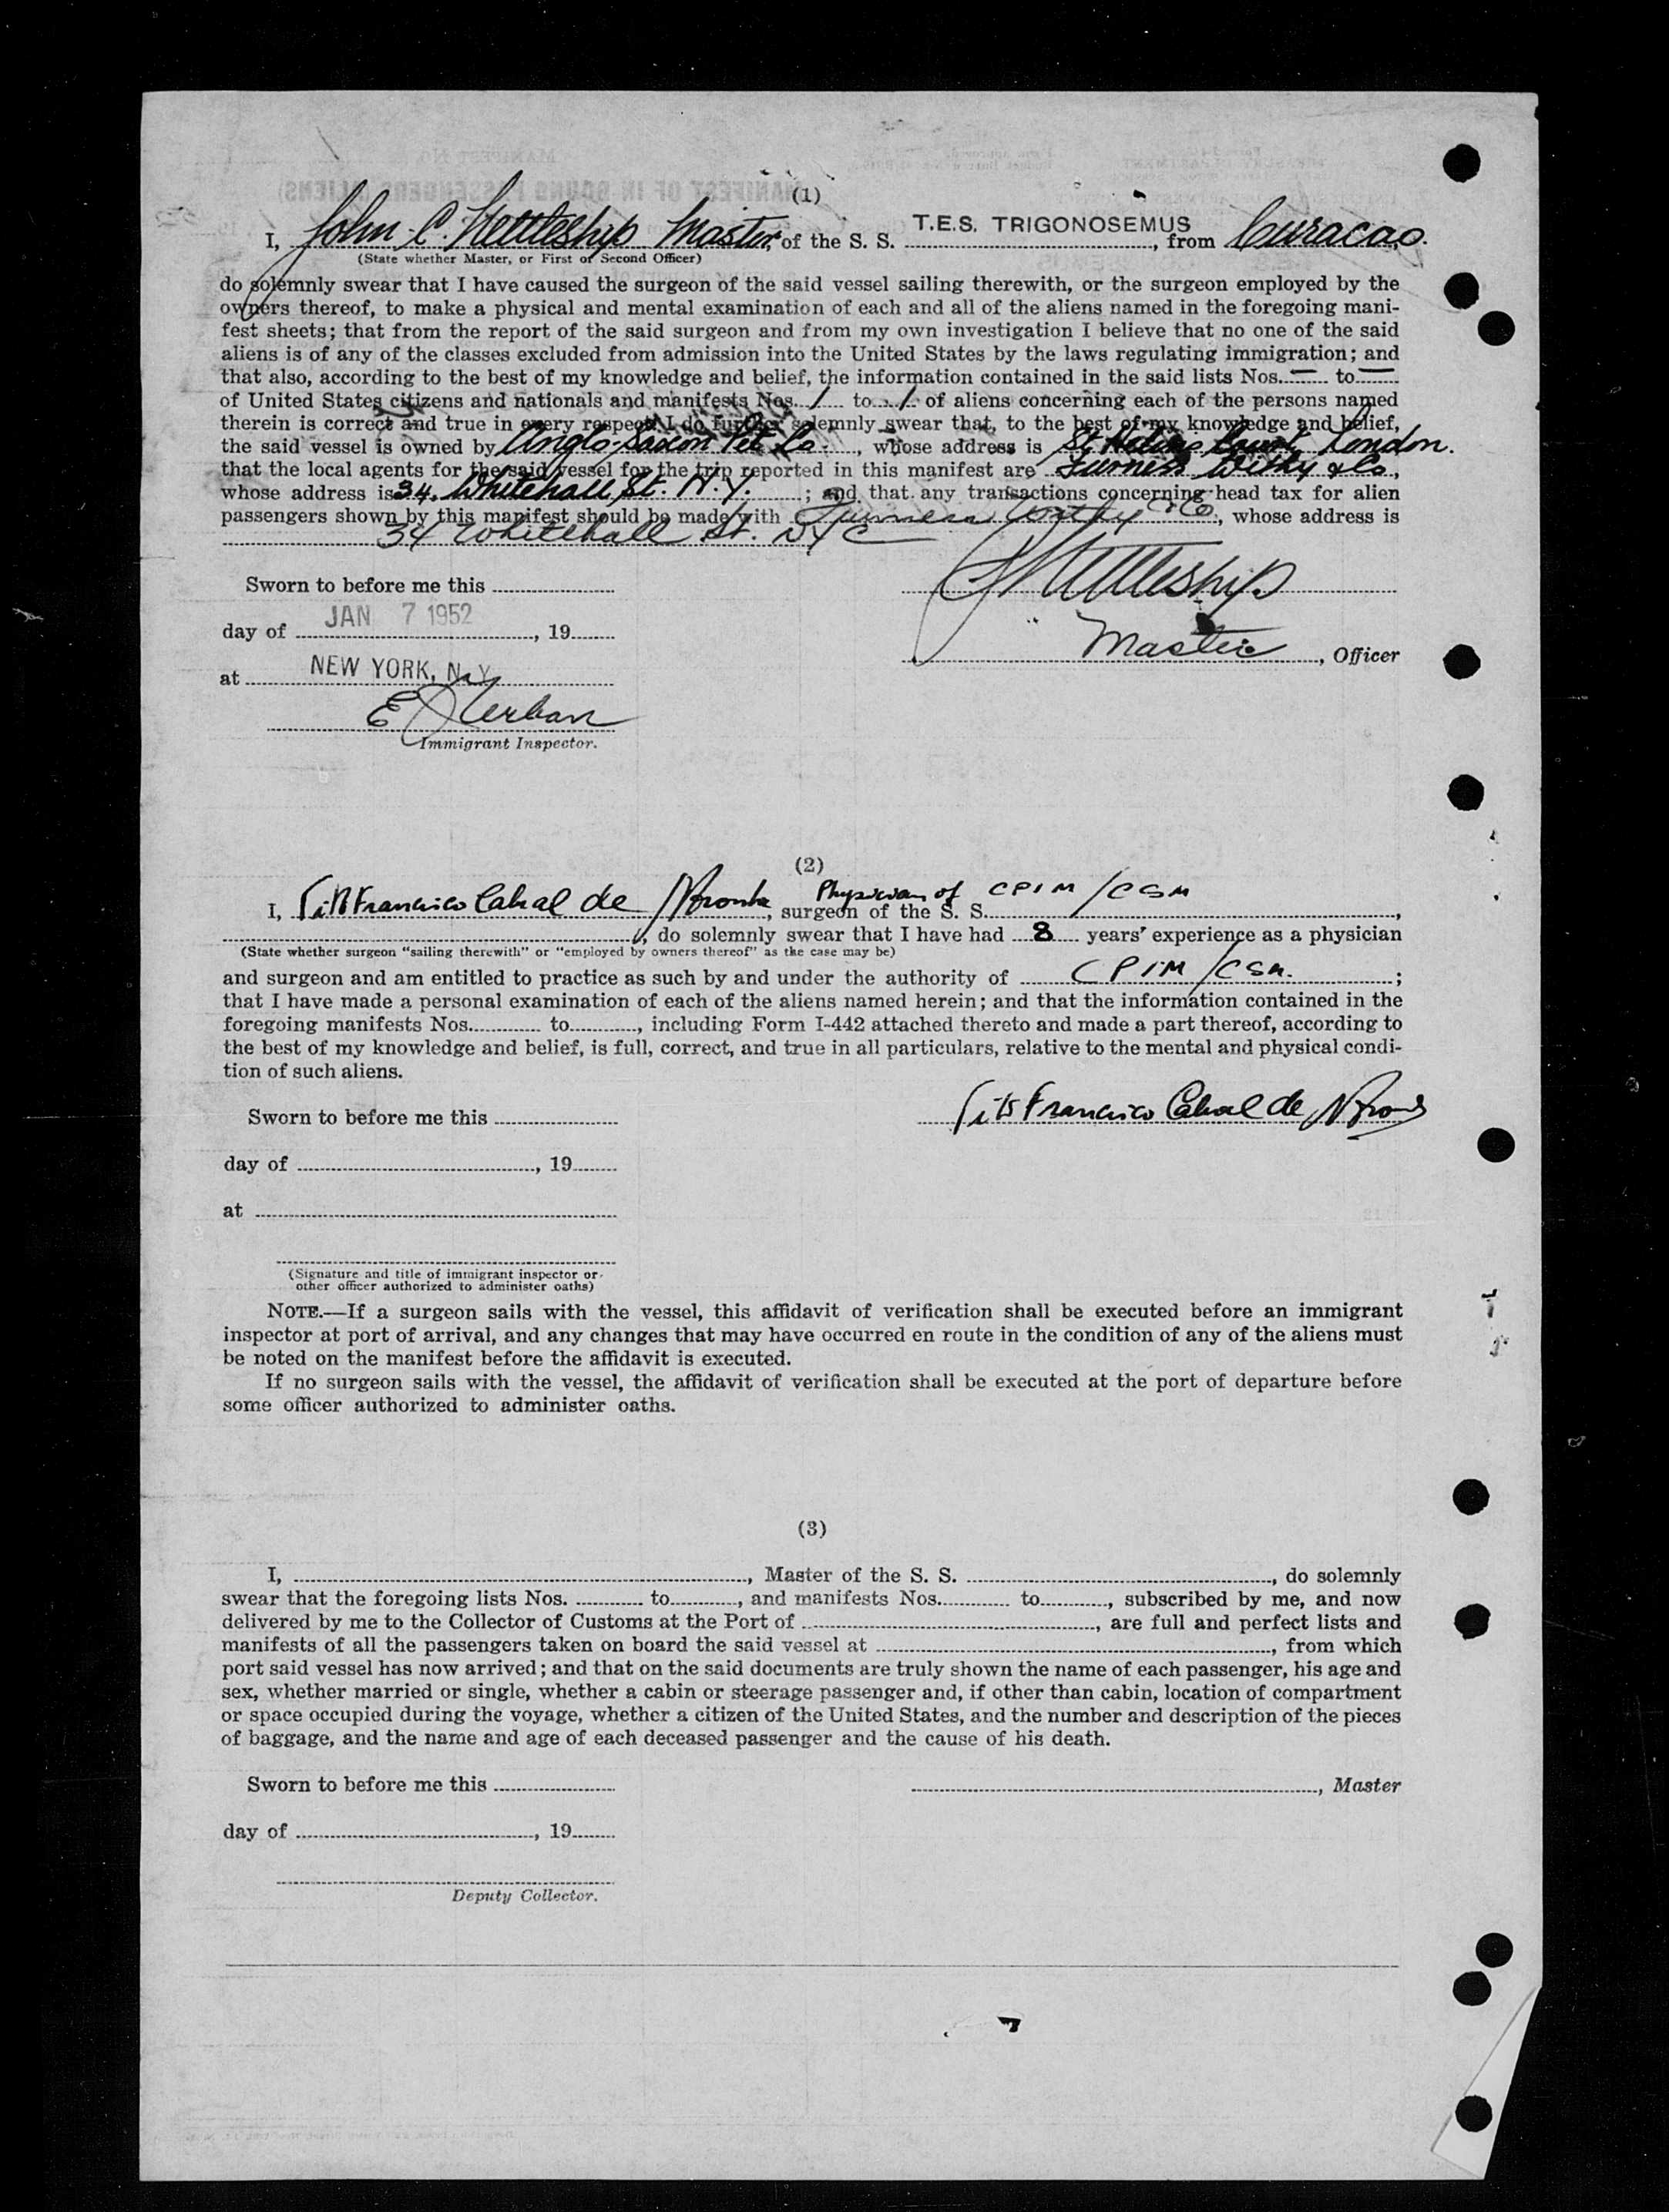 (1)
I, John C. Nettleship Master, of the S. S. T.E.S. TRIGONOSEMUS, from Curacao.
(State whether Master, or First or Second Officer)
do solemnly swear that I have caused the surgeon of the said vessel sailing therewith, or the surgeon employed by the
owners thereof, to make a physical and mental examination of each and all of the aliens named in the foregoing mani-
fest sheets; that from the report of the said surgeon and from my own investigation I believe that no one of the said
aliens is of any of the classes excluded from admission into the United States by the laws regulating immigration; and
that also, according to the best of my knowledge and belief, the information contained in the said lists Nos. — to —
of United States citizens and nationals and manifests Nos. 1 to 1 of aliens concerning each of the persons named
therein is correct and true in every respect. I do further solemnly swear that, to the best of my knowledge and belief,
the said vessel is owned by Anglo-Saxon Pet. Co., whose address is St. Helens Court London.
that the local agents for the said vessel for the trip reported in this manifest are Furness Withy & Co.,
whose address is 34, Whitehall St. N.Y. ; and that any transactions concerning head tax for alien
passengers shown by this manifest should be made with Furness Withy & Co, whose address is
34 Whitehall St. NYC
Sworn to before me this
Nettleship
day of JAN 7 1952, 19
Master, Officer
at NEW YORK, N.Y.
Immigrant Inspector.
(2)
I, Francisco Cabral de, Physician of CPIM/CSM
surgeon of the S. S.,
, do solemnly swear that I have had 8 years' experience as a physician
(State whether surgeon "sailing therewith" or "employed by owners thereof" as the case may be)
and surgeon and am entitled to practice as such by and under the authority of CPIM/CSM. ;
that I have made a personal examination of each of the aliens named herein; and that the information contained in the
foregoing manifests Nos. to, including Form I-442 attached thereto and made a part thereof, according to
the best of my knowledge and belief, is full, correct, and true in all particulars, relative to the mental and physical condi-
tion of such aliens.
Francisco Cabral de
Sworn to before me this
day of , 19
at
(Signature and title of immigrant inspector or
other officer authorized to administer oaths)
NOTE.—If a surgeon sails with the vessel, this affidavit of verification shall be executed before an immigrant
inspector at port of arrival, and any changes that may have occurred en route in the condition of any of the aliens must
be noted on the manifest before the affidavit is executed.
If no surgeon sails with the vessel, the affidavit of verification shall be executed at the port of departure before
some officer authorized to administer oaths.
(3)
I, , Master of the S. S. , do solemnly
swear that the foregoing lists Nos. to, and manifests Nos. to, subscribed by me, and now
delivered by me to the Collector of Customs at the Port of , are full and perfect lists and
manifests of all the passengers taken on board the said vessel at , from which
port said vessel has now arrived; and that on the said documents are truly shown the name of each passenger, his age and
sex, whether married or single, whether a cabin or steerage passenger and, if other than cabin, location of compartment
or space occupied during the voyage, whether a citizen of the United States, and the number and description of the pieces
of baggage, and the name and age of each deceased passenger and the cause of his death.
Sworn to before me this
, Master
day of , 19
Deputy Collector.